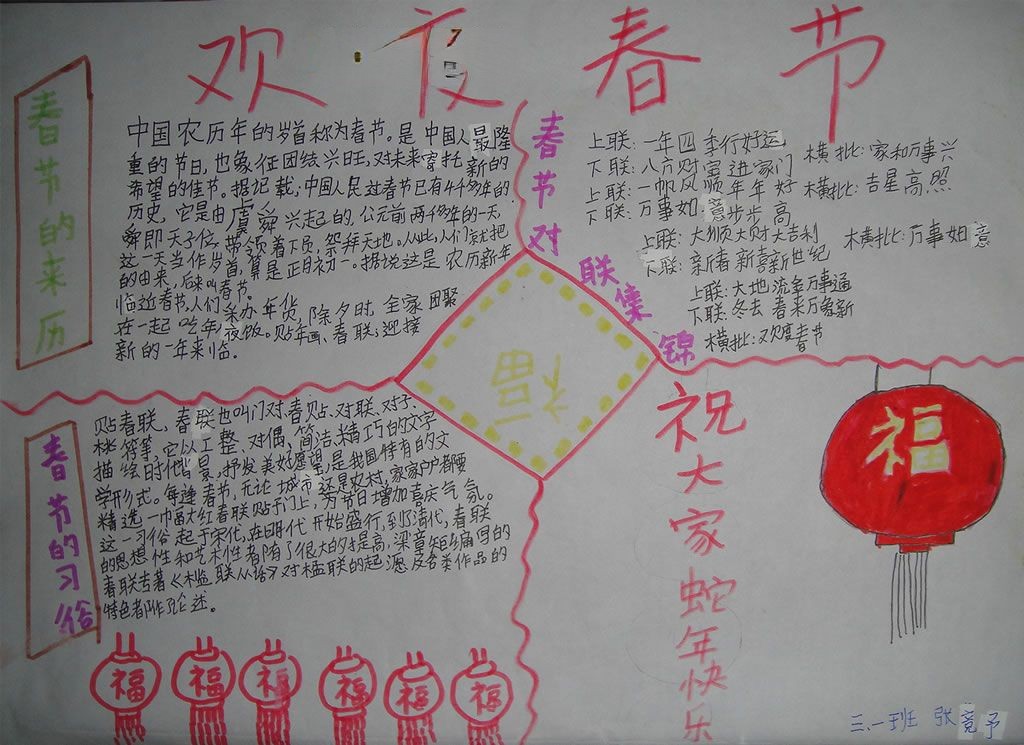 欢度春节
春节的来历
中国农历年的岁首称为春节。是中国人最隆
重的节日,也象征团结兴旺,对未来寄托新的
希望的佳节。据记载,中国人民过春节已有4千多年的
历史,它是由虞舜兴起的。公元前两千多年的一天,
舜即天子位,带领着下员,祭拜天地。从此,人们就把
这一天当作岁首,算是正月初一。据说这是农历新年
的由来,后来叫春节。
临近春节,人们采办年货,除夕时,全家团聚
在一起吃年夜饭。贴年画、春联;迎接
新的一年来临.
春节对联集锦
上联:一年四季行好运
下联:八方财宝进家门
横批:家和万事兴
上联:一帆风顺年年好
下联:万事如意步步高
横批:吉星高照
上联:大顺大财大吉利
下联:新春新喜新世纪
横批:万事如意
上联:大地流金万事通
下联:冬去春来万象新
横批:欢度春节
福
春节的习俗
贴春联、春联也叫门对、春贴、对联、对子
桃符等,它以工整、对偶、简洁、精巧的文字
描绘时代背景,抒发美好愿望,是我国特有的文
学形式。每逢春节,无论城市还是农村,家家户户都要
精选一幅大红春联贴于门上,为节日增加喜庆气氛。
这一习俗起于宋代,在明代开始盛行,到了清代,春联
的思想性和艺术性都有了很大的提高,梁章矩编写的
春联专著《槛联丛话》对楹联的起源及各类作品的
特色都作了论述。
祝大家蛇年快乐
福
福 福 福 福 福 福
三.一班 张竟予